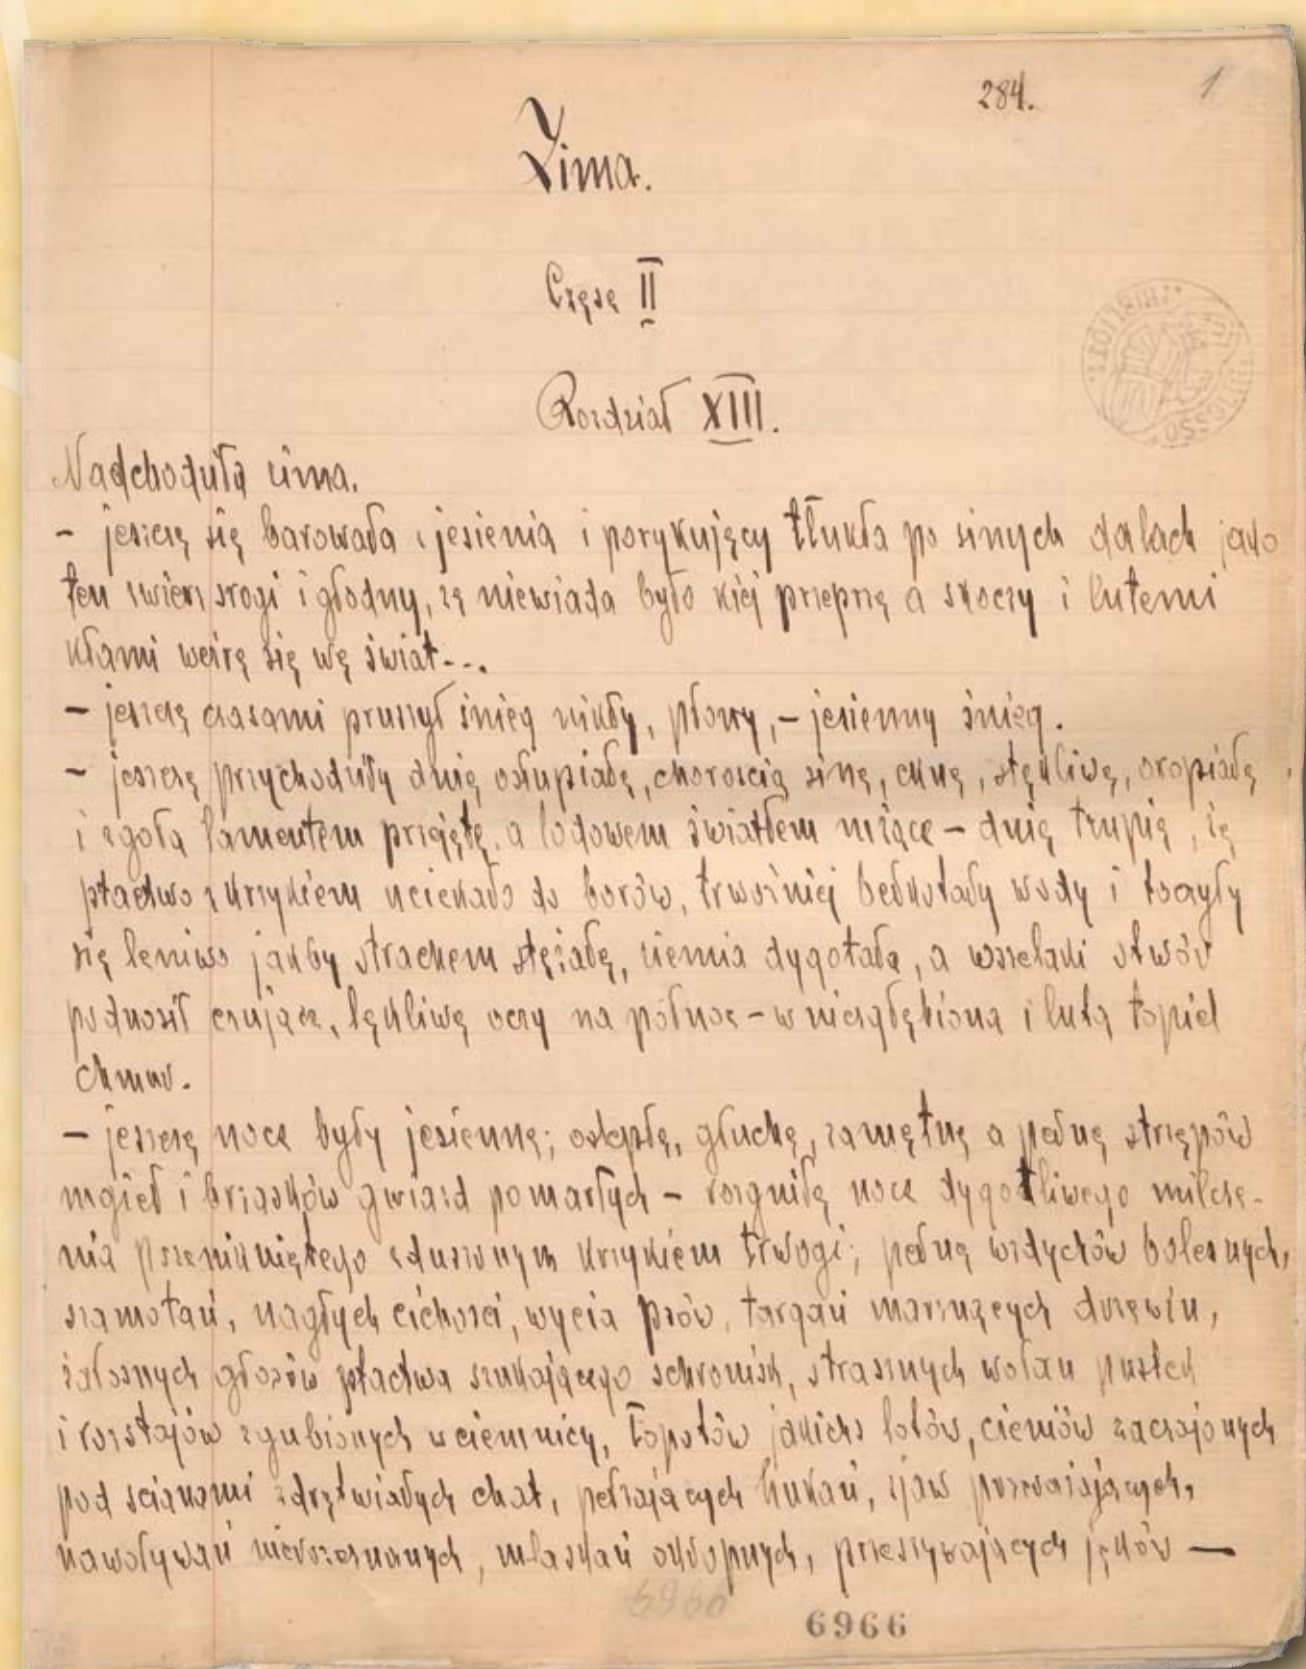 284.
1
Zima.
Część II
Rozdział XIII.
Nadchodziła zima.
- jeszcze się barowała z jesienią i porykujący tłukła po sinych dalach jako
ten zwierz srogi i głodny, że niewiada było kiej przeprze a skoczy i lutemi
kłami weźre się we świat---.
- jeszcze czasami prószył śnieg nikły, płowy, - jesienny śnieg.
- jeszcze przychodziły dnie osłupiałe, chorością sine, ckne, stękliwe, oropiałe
i zgoła lamentem przejęte, a lodowem światłem mżące - dnie trupie, że
ptactwo z krzykiem uciekało do borów, trwożniej bełkotały wody i toczyły
się leniwo jakby strachem stężałe, ziemia dygotała, a wszelaki stwór
podnosił czujące, lękliwe oczy na północ - w niezgłębioną i lutą topiel
chmur.
- jeszcze noce były jesienne; oślepłe, głuche, zamętne a pełne strzępów
mgieł i brzasków gwiazd pomarłych - rozgniłe noce dygotliwego milcze-
nia przenikniętego zduszonym krzykiem trwogi; pełne wzdychów bolesnych,
szamotań, nagłych cichości, wycia psów, targań marznących drzewin,
żałosnych głosów ptactwa szukającego schronisk, strasznych wołań pustek
i rozstajów zgubionych w ciemnicy, łopotów jakichś lotów, cieniów zaczajonych
pod ścianami zdrętwiałych chat, pełzających hukań, zjaw przerażających,
nawoływań mlaskań okropnych, przeszywających jęków —
6966